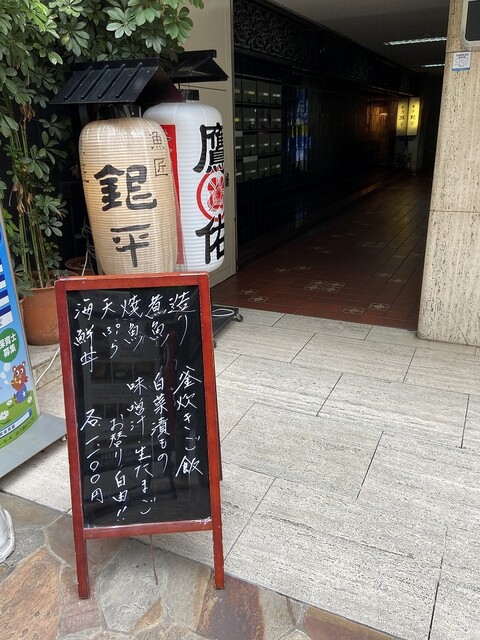 魚匠
銀平
鷹
佑
造り
煮魚
焼魚
天ぷら
海鮮丼
釜炊きご飯
白菜漬もの
味噌汁 生たまご
お替り自由!!
各一一〇〇円
保育士
募集